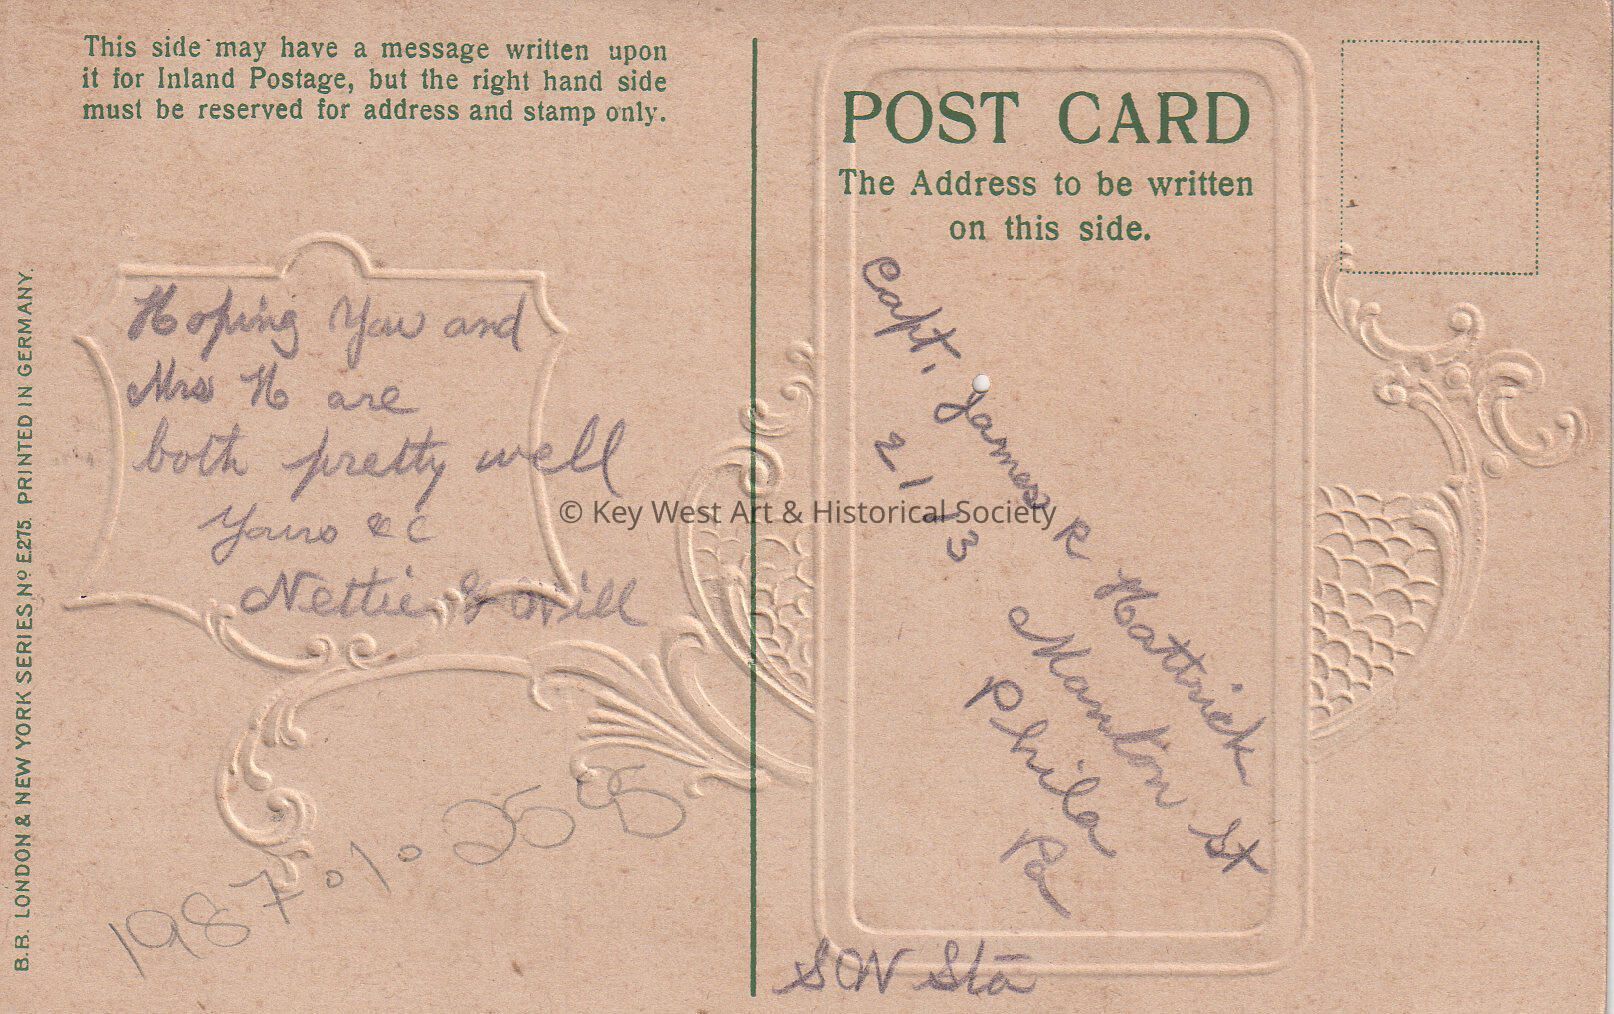 This side may have a message written upon
it for Inland Postage, but the right hand side
must be reserved for address and stamp only.
Hoping You and
Mrs H are
both pretty well
Yours &c
Nettie & Will
1987.01.2585
B.B. LONDON & NEW YORK SERIES Nº E.275. PRINTED IN GERMANY.
POST CARD
The Address to be written
on this side.
Capt. James R Hattrick
2113 Manton St
Phila
Pa
S W Sta
© Key West Art & Historical Society